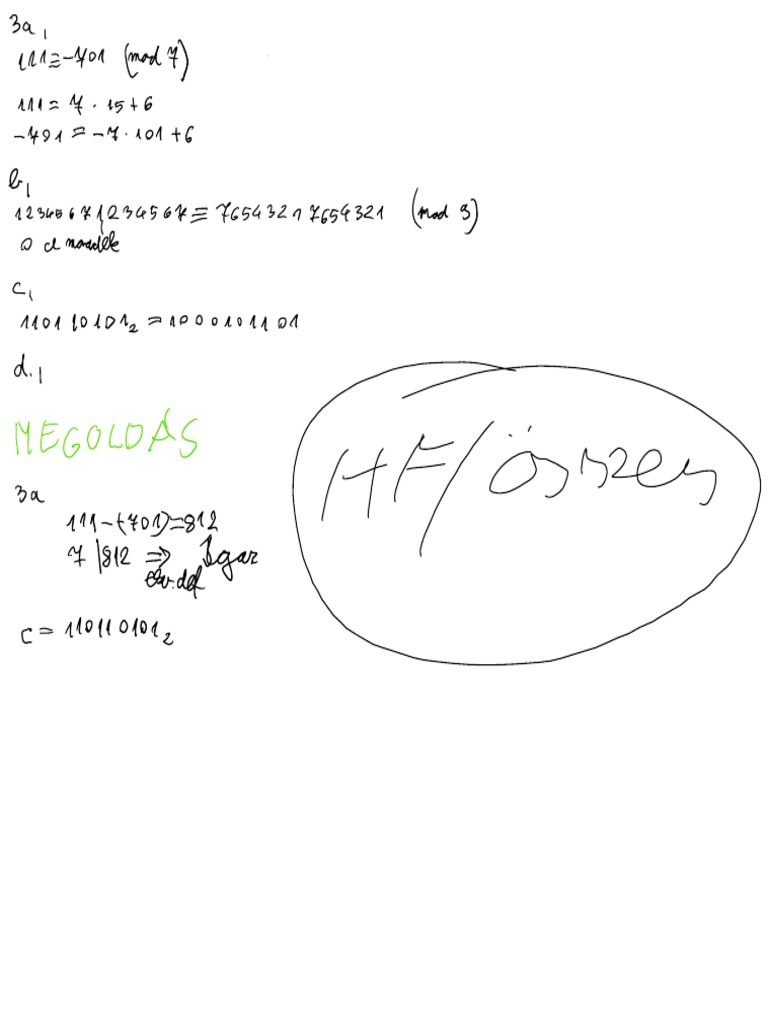 3a,
111≡-701 (mod 7)
111 = 7 · 15 + 6
-701 = -7 · 101 + 6
b,
12345671234567 ≡ 76543217654321 (mod 3)
0 a maradék
c,
1101101012 = 1000101101
d.,
MEGOLDÁS
3a
111-(-701)=812
7 |812 ⇒ Igaz
def
C = 1101101012
HF/összes